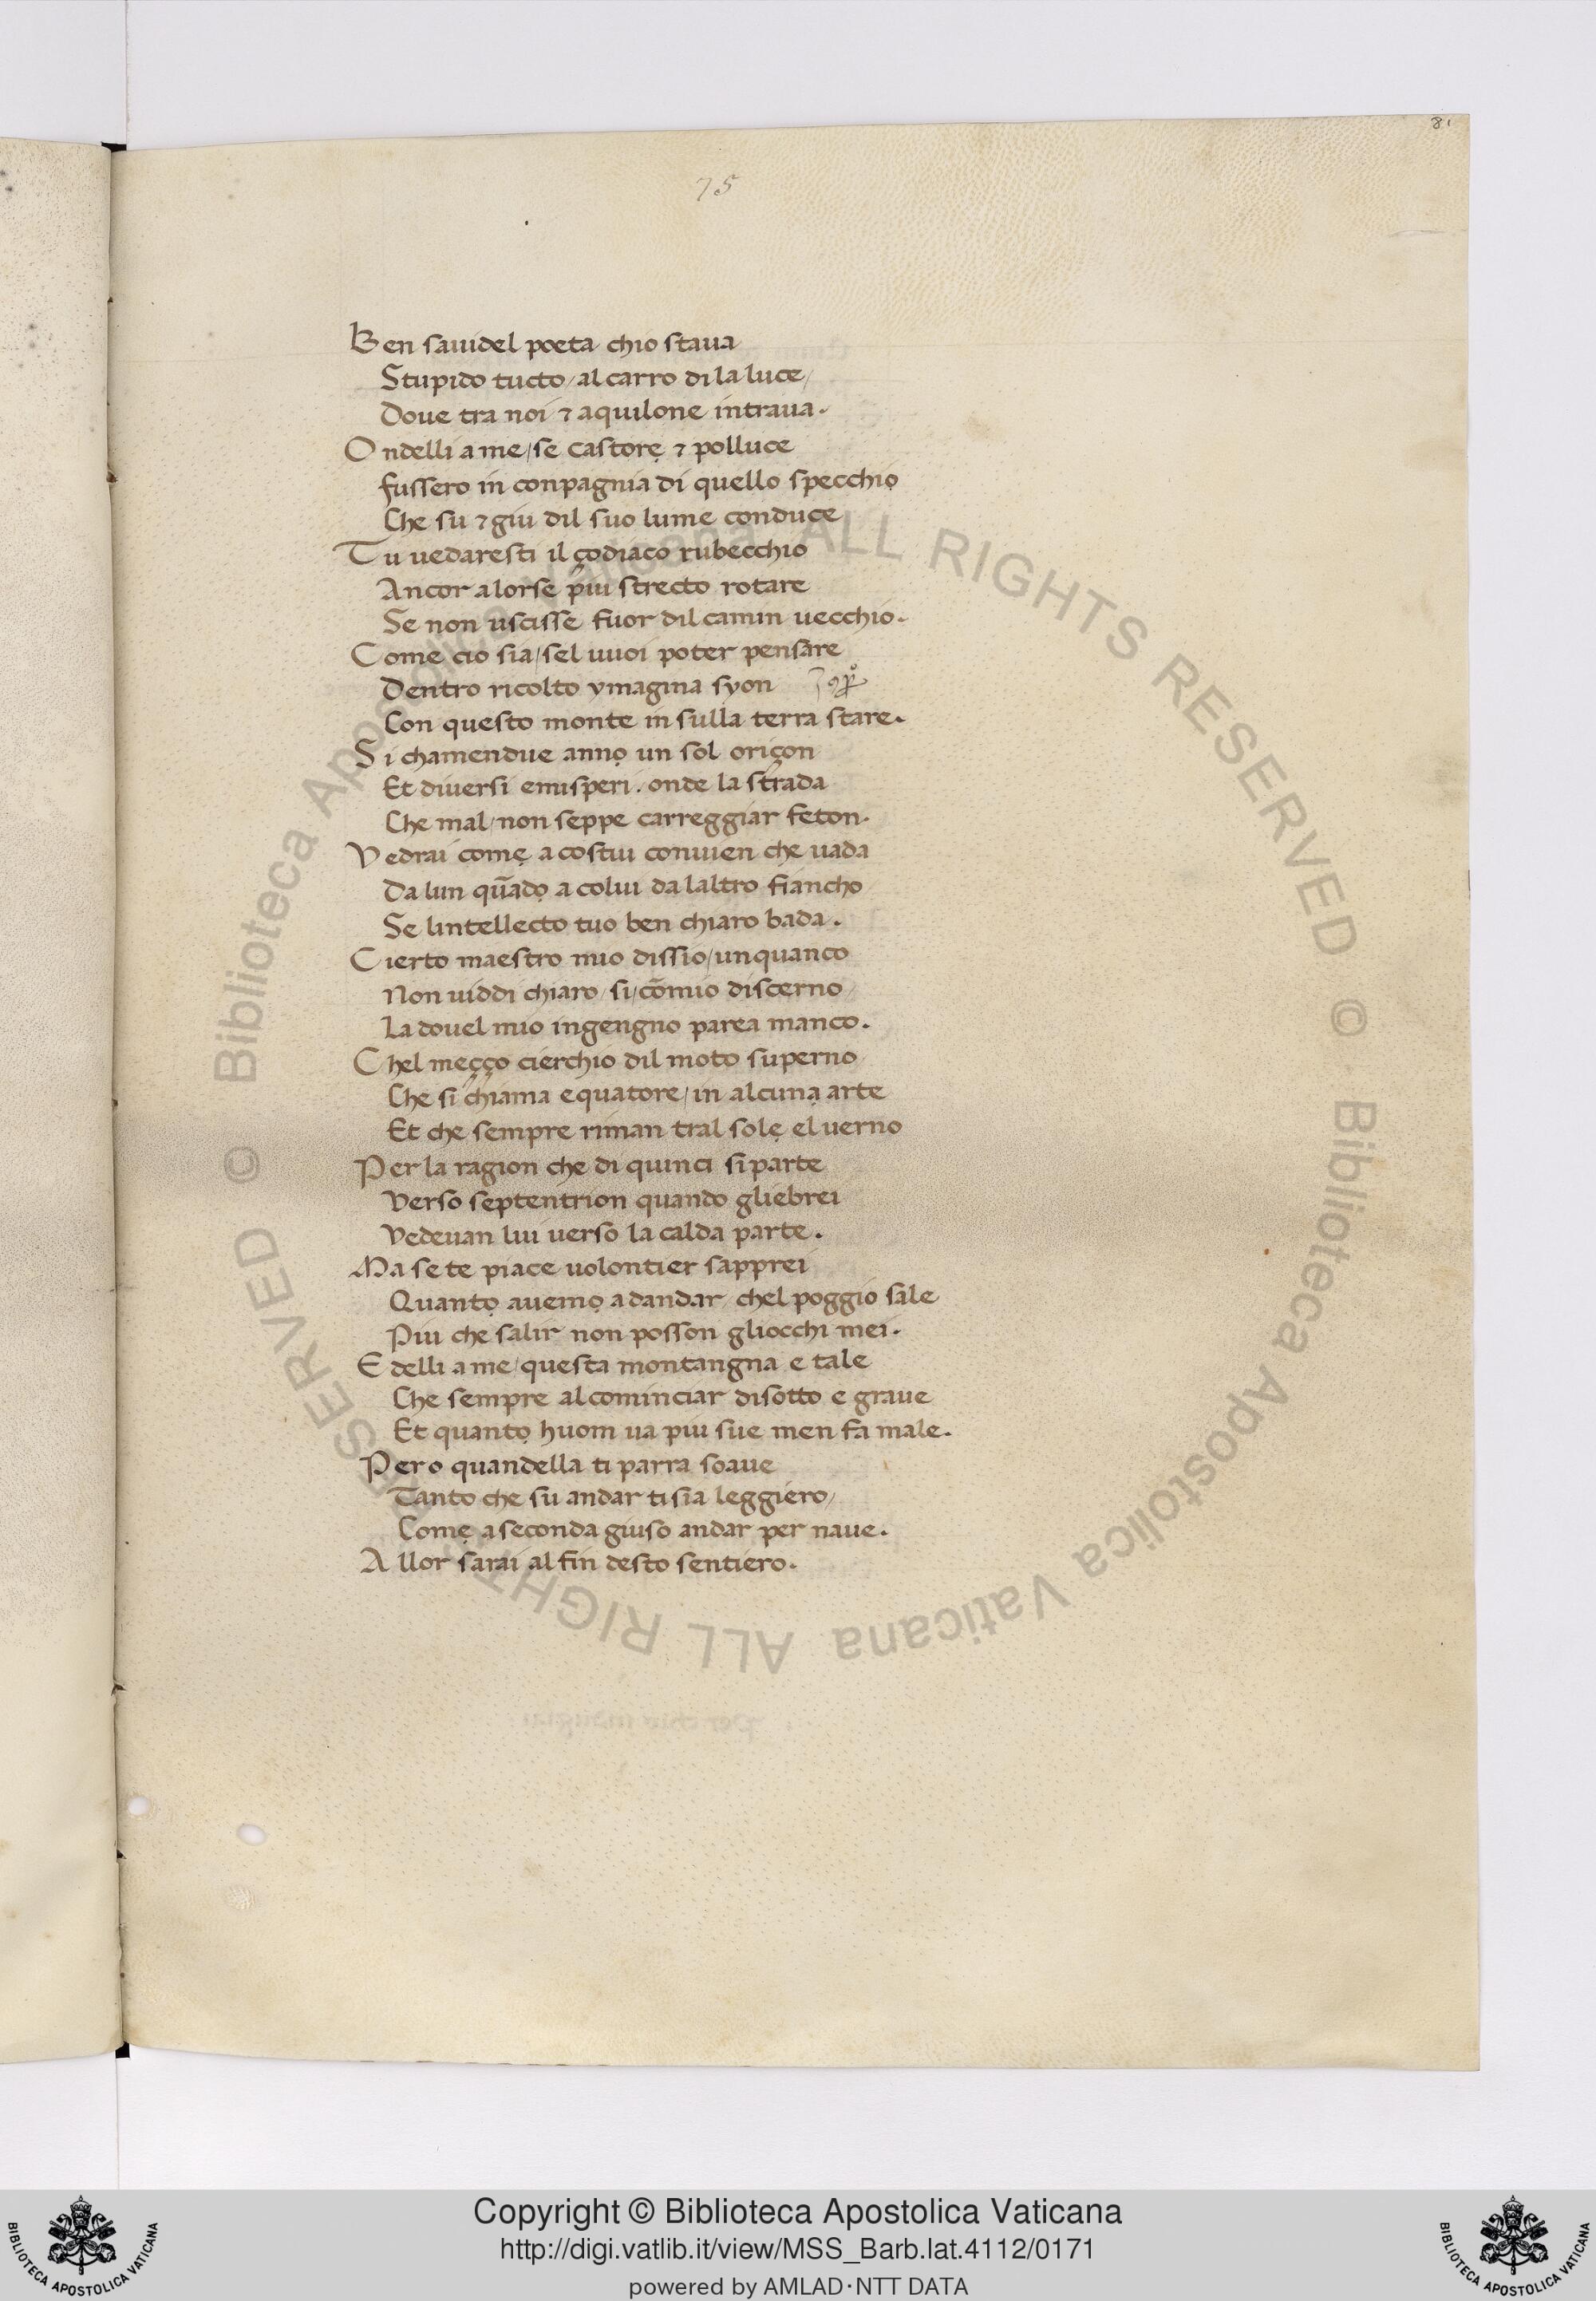 81
75
Ben sauidel poeta chio staua
Stupido tucto / al carro di la luce /
Doue tra noi ⁊ aquilone intraua.
Ondelli a me / se castorẹ ⁊ polluce
fussero in conpagnia di quello specchiọ
Che su ⁊ giu dil suo lume conduce
Tu uedaresti il çodiaco rubecchio
Ancor alorse piu strecto rotare
Se non uscisse fuor dil camin uecchio.
Come cio sia / sel uuoi poter pensare
Dentro ricolto ymagina syon
Con questo monte in sulla terra stare.
Si chamendue annọ un sol oriçon
Et diuersi emisperi . onde la strada
Che mal / non seppe carreggiar feton.
Vedrai comẹ a costui conuien che uada
Da lun qũadọ a colui da laltro fiancho
Se lintellecto tuo ben chiaro bada.
Cierto maestro mio dissio / unquanco
Non uiddi chiaro / si / cõmio discerno
La douel mio ingengno parea manco.
Chel meçço cierchio dil moto superno
Che si chiama equatore / in alcunạ arte
Et che sempre riman tral solẹ el uerno
Per la ragion che di quinci si parte
Verso septentrion quando gliebrei
Vedeuan lui uerso la calda parte.
Ma se te piace uolontier sapprei
Quantọ auemọ ad andar / chel poggio sale
Piu che salir non posson gliocchi mei.
Edelli a me / questa montangna e tale
Che sempre al cominciar disotto e graue
Et quantọ huom ua piu sue men fa male.
Pero quandella ti parra soaue
Tanto che su andar ti sia leggiero /
Comẹ a seconda giuso andar per naue.
Allor sarai al fin desto sentiero.
© Biblioteca Apostolica Vaticana ALL RIGHTS RESERVED © Biblioteca Apostolica Vaticana ALL RIGHTS RESERVED
Copyright © Biblioteca Apostolica Vaticana
http://digi.vatlib.it/view/MSS_Barb.lat.4112/0171
powered by AMLAD·NTT DATA
BIBLIOTECA APOSTOLICA VATICANA
BIBLIOTECA APOSTOLICA VATICANA